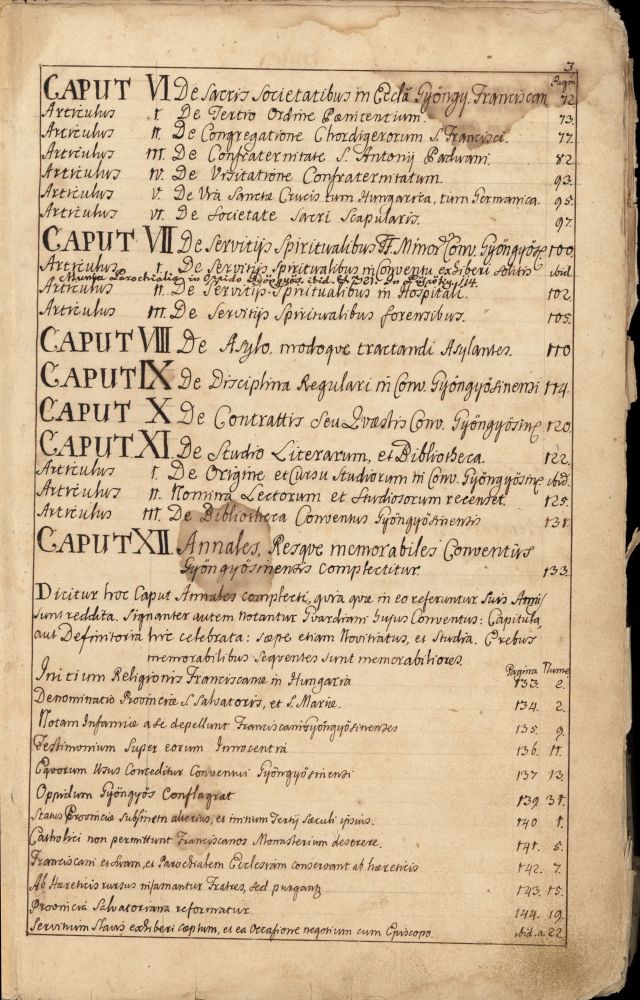 3.
Pagin
CAPUT VI De Sacris Societatibus in Ecclã Gyöngy. Franciscan 72
Articulus I. De Tertio Ordine Pænitentium. 73.
Articulus II. De Congregatione Chordigerorum S. Francisci. 77.
Articulus III. De Confraternitate S. Antonij Paduani. 82
Articulus IV. De Visitatione Confraternitatum. 93.
Articulus V. De Via Sanctæ Crucis tum Hungarica, tum Germanica. 95.
Articulus VI. De Societate Sacri Scapularis. 97.
CAPUT VII De Servitijs Spiritualibus FF. Minor Conv. Gyöngyös 100
Articulus I. De Servitijs Spiritualibus in Conventu exhiberi solitis ibid.
Parochialia in Oppido Gyöngyös. ibid. 114.
Articulus II. De Servitijs Spiritualibus in Hospitali. 102
Articulus III. De Servitijs Spiritualibus forensibus. 105.
CAPUT VIII De Asylo, modoque tractandi Asylantes. 110
CAPUT IX De Disciplina Regulari in Conv. Gyöngyösinensi 114.
CAPUT X De Contrattis Seu Quæstis Conv. Gyöngyösin 120
CAPUT XI De Studio Literarum, et Bibliotheca. 122
Articulus I. De Origine et Cursu Studiorum in Conv. Gyöngyösin ibid.
Articulus II. Nomina Lectorum et Studiosorum recenset. 125.
Articulus III. De Bibliotheca Conventus Gyöngyösinensis 131.
CAPUT XII. Annales, Resque memorabiles Conventûs
Gyöngyösinensis complectitur. 133.
Dicitur hoc Caput Annales complecti, quia quæ in eo referuntur Suis Annis
sunt reddita. Signanter autem notantur Gvardiani hujus Conventus: Capitula,
aut Definitoria hic celebrata: sæpe etiam Novitiatus, et Studia. E rebus
memorabilibus Sequentes sunt memorabiliores.
Pagina Nume
Initium Religionis Franciscanæ in Hungaria 133. 2.
Denominatio Provinciæ S. Salvatoris, et S. Mariæ. 134. 2.
Notam Infamiæ a se depellunt Franciscani Gyöngyösinenses 135. 9.
Testimonium Super eorum Innocentia 136. 11.
Equorum Usus Conceditur Conventui Gyöngyösinensi 137 13.
Oppidum Gyöngyös Conflagrat 139 31.
Status Provinciæ alterius, et initium Tertij Sæculi ipsius. 140 1.
Catholici non permittunt Franciscanos Monasterium deserere. 141. 5.
Franciscani et Suam, et Parochialem Ecclesiam conservant ab hæreticis 142. 7.
Ab Hæreticis rursus infamantur Fratres, sed purgant 143. 15.
Provincia Salvatoriana reformatur 144. 19.
Servitium Slavis exhiberi cæptum, et ea Occasione negotium cum Episcopo. ibid. a. 22.